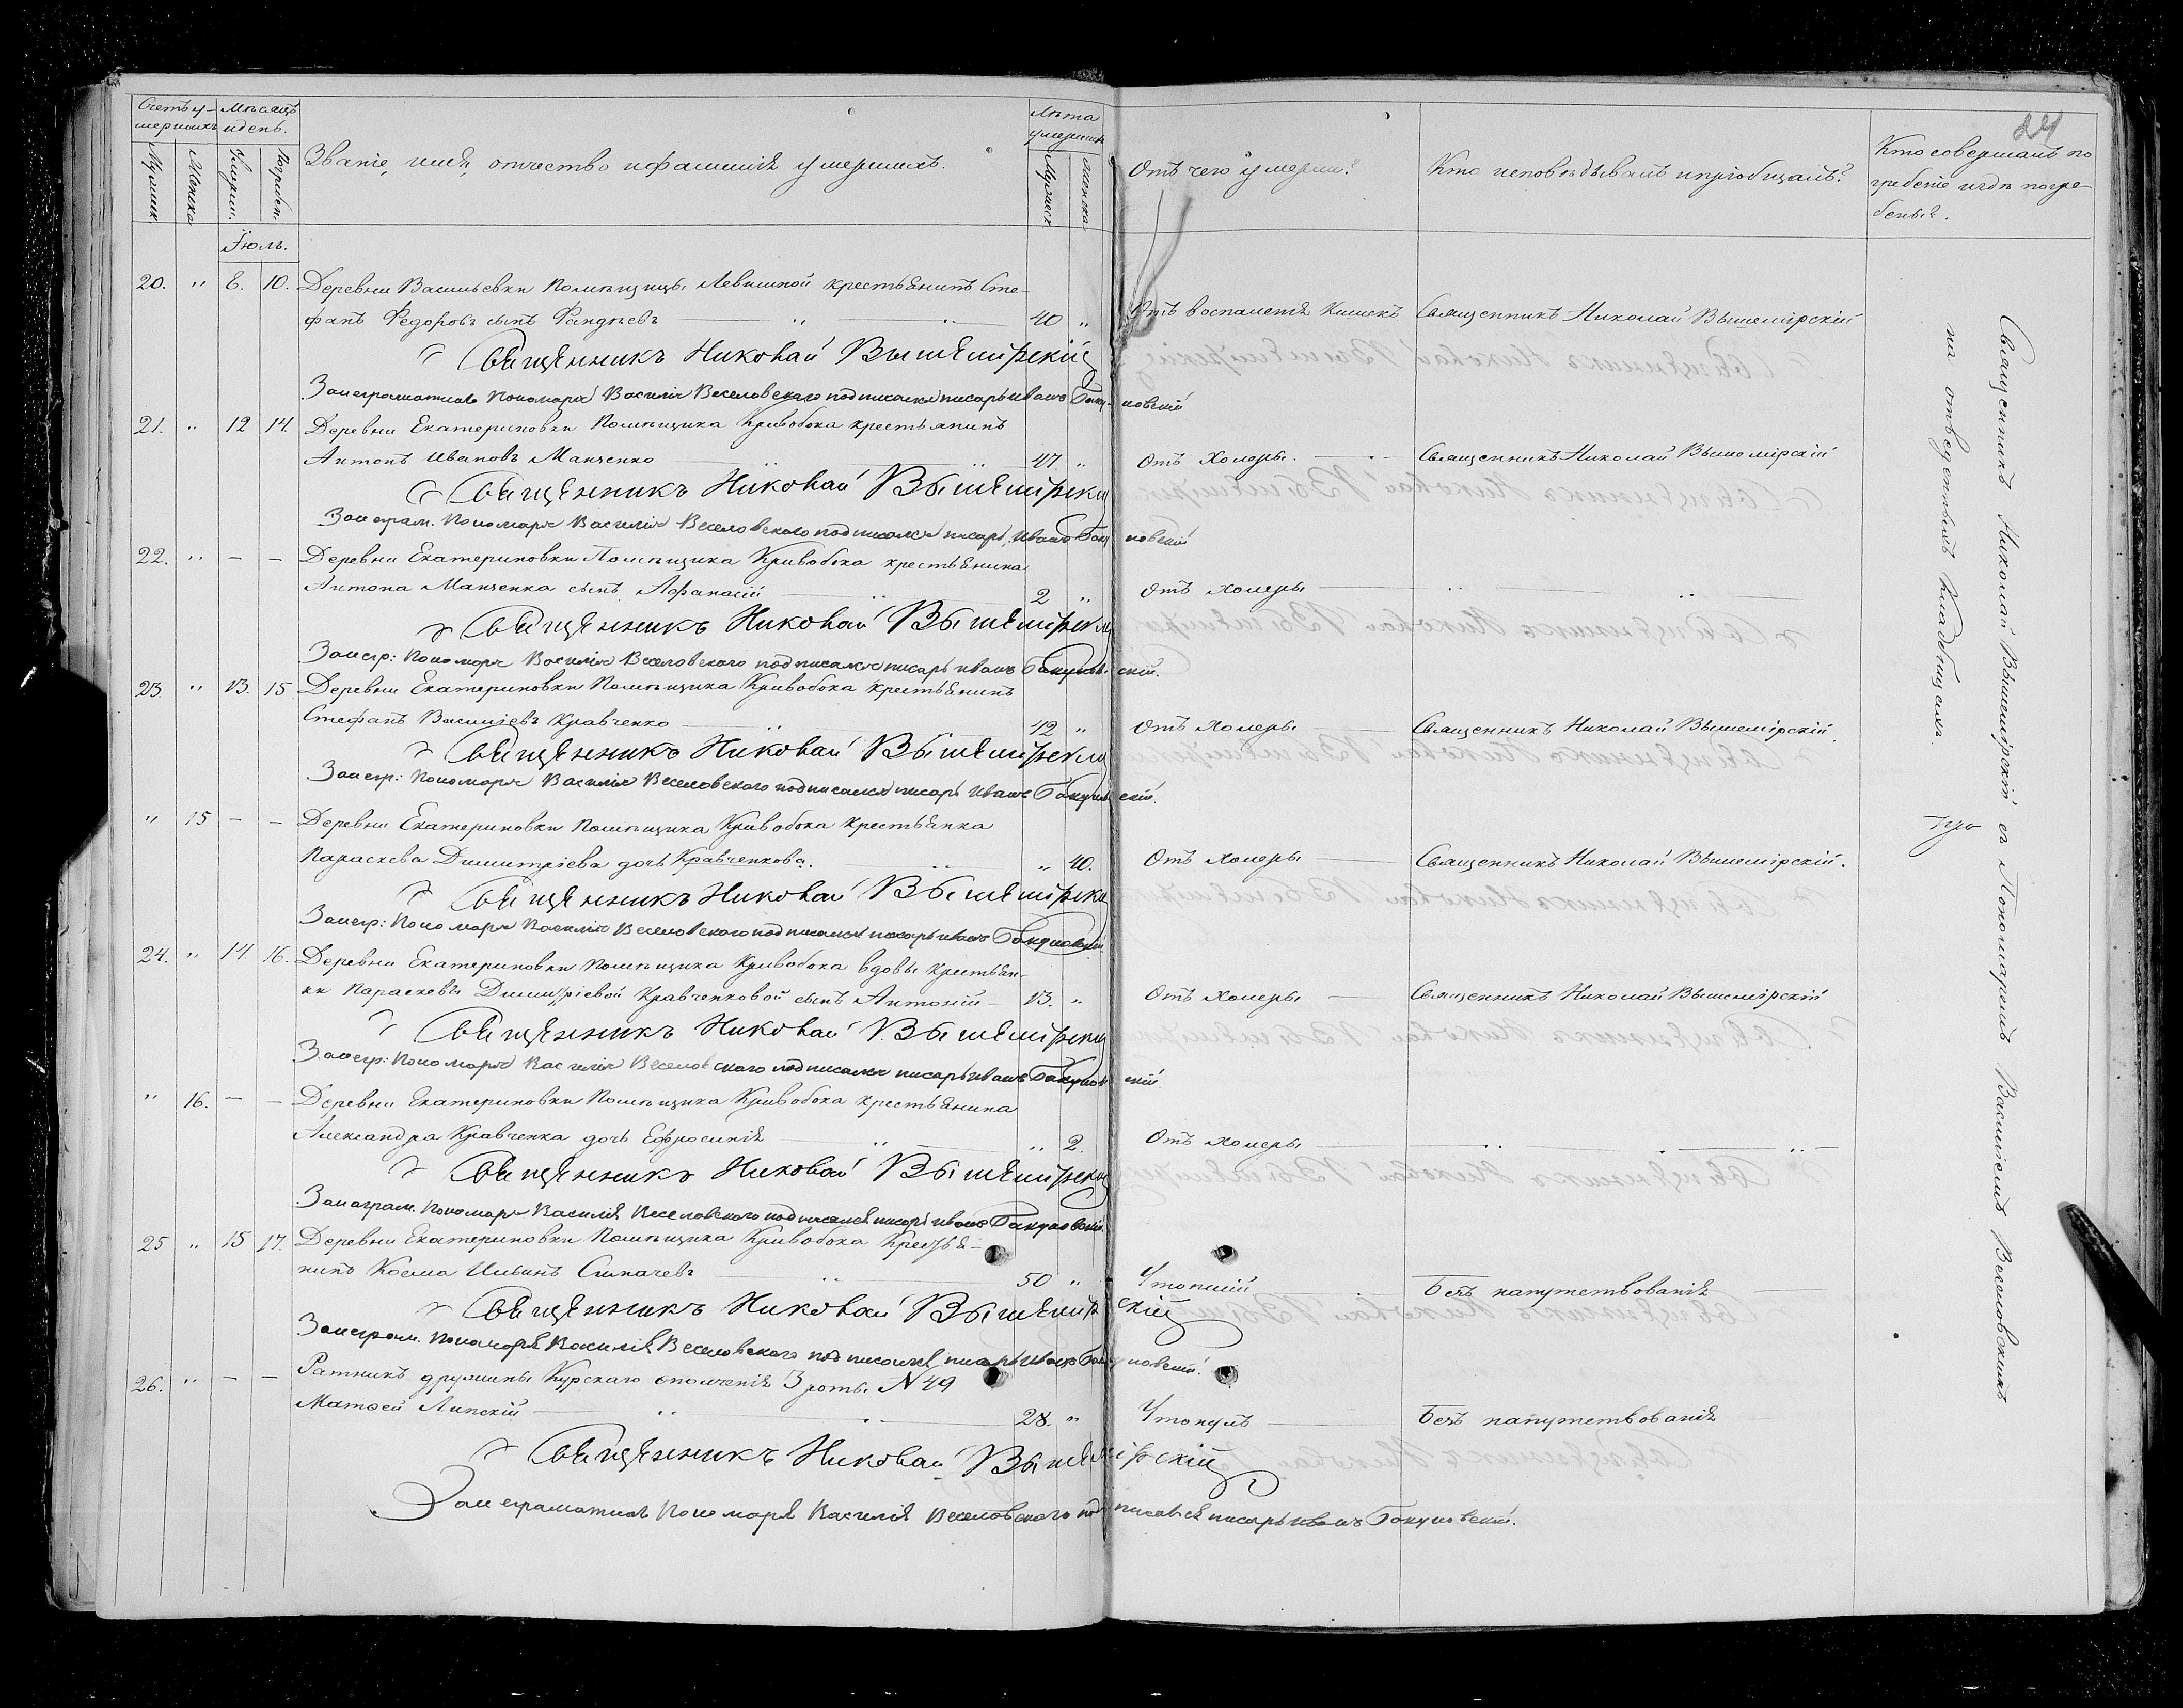 24
Счетъ у-
мершихъ
Мѣсяцъ
и день.
Званіе, имя, отчество и фамилія умершихъ.
Лѣта
умерших
Отъ чего умерли?
Кто исповѣдывалъ и пріобщалъ?
Кто совершалъ по
гребеніе и гдѣ погре-
бены.
Мужск.
Женск.
Мужеск
Женска
Іюль.
20. " 8. 10. Деревни Васильевки Помѣщицы Левшиной крестьянинъ Сте-
фанъ Федоровъ сынъ 40 " Отъ воспаленія Кишекъ Священникъ Николай Вышемірскій
Священникъ Николай Вышемірскій
За неграматнаго Пономаря Василія Веселовскаго подписался писарь Иванъ Бакуновскій
21. " 12 14. Деревни Екатериновки Помѣщика Кривобока крестьянинъ
Антонъ Ивановъ Манченко 47. " Отъ Холеры. Священникъ Николай Вышемірскій
Священникъ Николай Вышемірскій
За неграм. Пономаря Василія Веселовскаго подписался писарь Иванъ Бакуновскій
22. " — — Деревни Екатериновки Помѣщика Кривобока крестьянина
Антона Манченка сынъ Афанасій 2 " Отъ холеры " "
Священникъ Николай Вышемірскій
За негр: Пономаря Василія Веселовскаго подписался писарь Иванъ Бакуновскій.
23. " 13. 15 Деревни Екатериновки Помѣщика Кривобока крестьянинъ
Стефанъ Василіевъ Кравченко 42 " Отъ Холеры Священникъ Николай Вышемірскій.
Священникъ Николай Вышемірскій
За негр: Пономаря Василія Веселовскаго подписался писарь Иванъ Бакуновскій.
" 15 — — Деревни Екатериновки Помѣщика Кривобока крестьянка
Параскева Димитріева дочь Кравченкова. " 40. Отъ холеры Священникъ Николай Вышемірскій.
Священникъ Николай Вышемірскій
За негр: Пономаря Василія Веселовскаго подписался писарь Иванъ Бакуновскій
24. " 14 16. Деревни Екатериновки Помѣщика Кривобока вдовы крестьян-
ки Параскевы Димитріевой Кравченковой сынъ Антоній 13. " Отъ Холеры Священникъ Николай Вышемірскій
Священникъ Николай Вышемірскій
За негр: Пономаря Василія Веселовскаго подписался писарь Иванъ Бакуновскій
" 16. — — Деревни Екатериновки Помѣщика Кривобока крестьянина
Александра Кравченка дочь Ефросинія " 2. Отъ холеры " "
Священникъ Николай Вышемірскій
За неграм. Пономаря Василія Веселовскаго подписался писарь Иванъ Бакуновскій
25 " 15 17. Деревни Екатериновки Помѣщика Кривобока Крестья-
нинъ Косма Ильинъ 50 " Утопшій Безъ напутствованія
Священникъ Николай Вышемірскій
За неграм. Пономаря Василія Веселовскаго подписался писарь Иванъ Бакуновскій.
26. " — — Ратникъ дружины Курскаго ополченія 3 роты N 49
Матѳей Липскій 28. " Утонулъ Безъ напутствованія
Священникъ Николай Вышемірскій
За неграматнаго Пономаря Василія Веселовскаго подписался писарь Иванъ Бакуновскій.
Священникъ Николай Вышемірскій съ Пономаремъ Василіемъ Веселовскимъ
на отведенныхъ кладбищахъ.